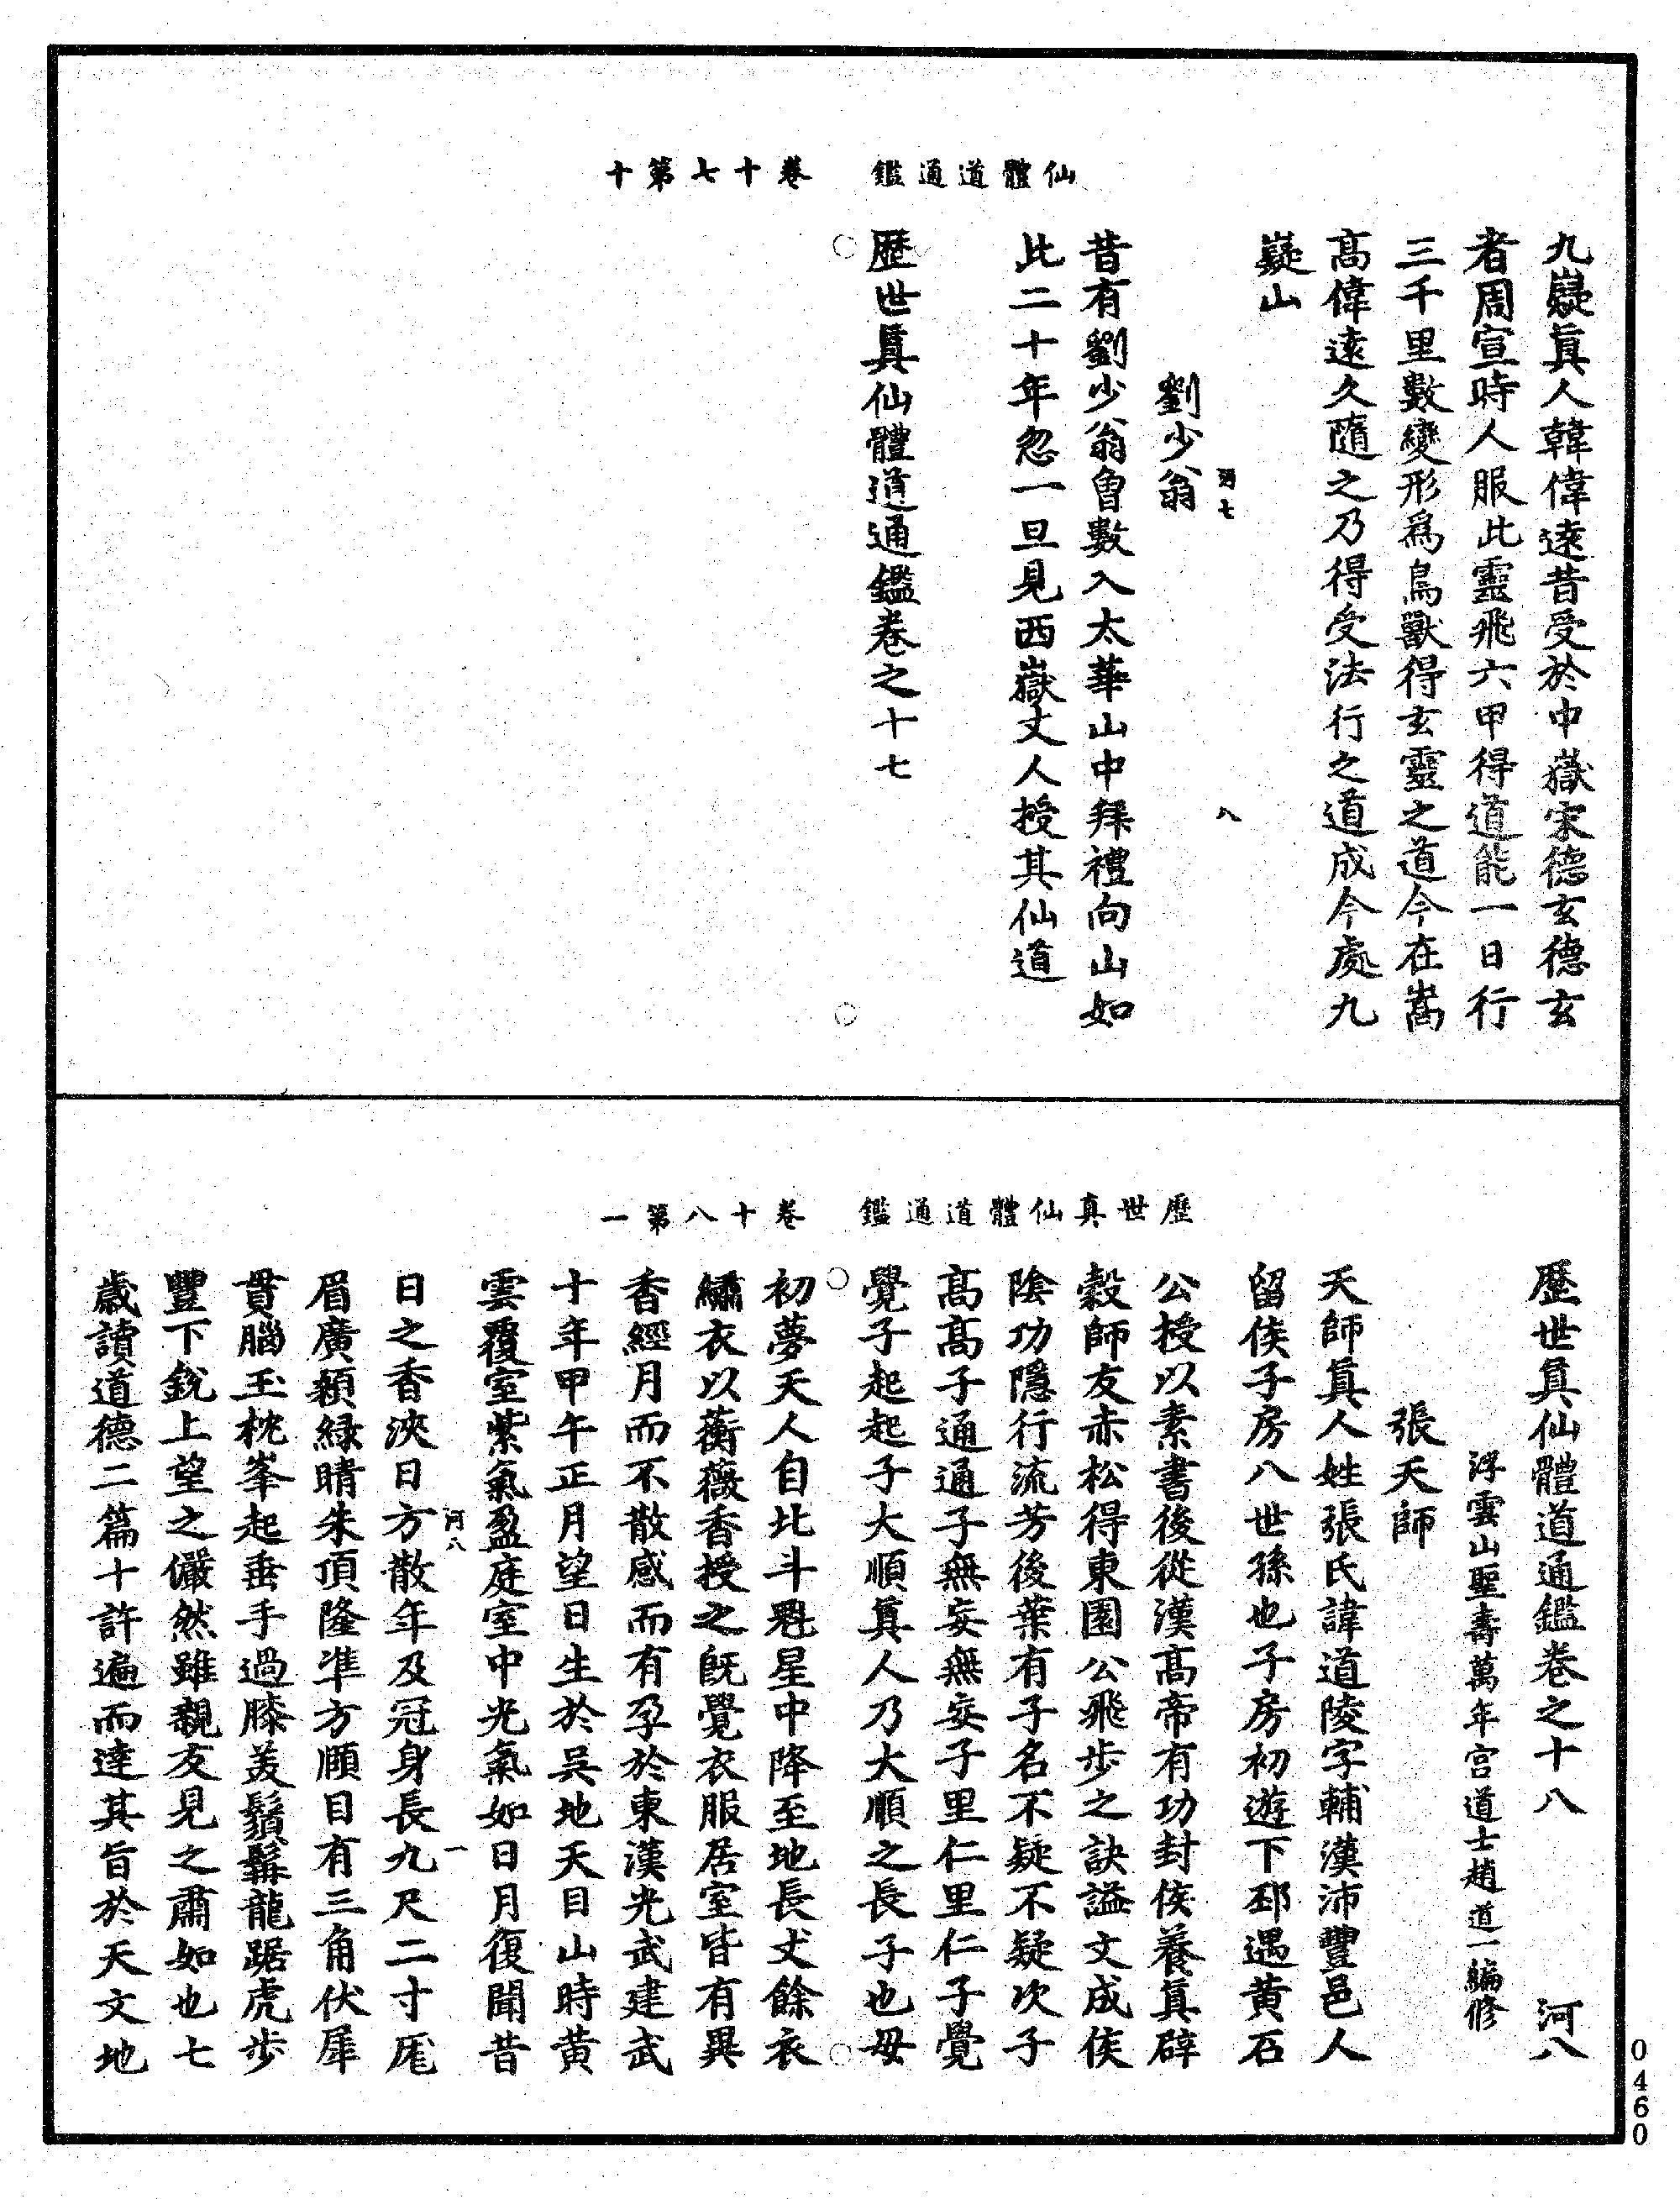 仙體道通鑑　卷十七第十
九嶷真人韓偉遠昔受於中嶽宋德玄德玄
者周宣時人服此靈飛六甲得道能一日行
三千里數變形爲鳥獸得玄靈之道今在嵩
高偉遠久隨之乃得受法行之道成今處九
嶷山
河七　八
劉少翁
昔有劉少翁曾數入太華山中拜禮向山如
此二十年忽一旦見西嶽丈人授其仙道
歷世真仙體道通鑑卷之十七
歷世真仙體道通鑑　卷十八第一
歷世真仙體道通鑑卷之十八　河八
浮雲山聖壽萬年宮道士趙道一編修
張天師
天師真人姓張氏諱道陵字輔漢沛豐邑人
留侯子房八世孫也子房初遊下邳遇黄石
公授以素書後從漢高帝有功封侯養真辟
穀師友赤松得東園公飛步之訣謚文成侯
陰功隱行流芳後葉有子名不疑不疑次子
高高子通通子無妄無妄子里仁里仁子覺
覺子起起子大順真人乃大順之長子也母
初夢天人自北斗魁星中降至地長丈餘衣
繡衣以蘅薇香授之既覺衣服居室皆有異
香經月而不散感而有孕於東漢光武建武
十年甲午正月望日生於吳地天目山時黄
雲覆室紫氣盈庭室中光氣如日月復聞昔
河八　一
日之香浹日方散年及冠身長九尺二寸厖
眉廣顙緑睛朱頂隆準方頤目有三角伏犀
貫腦玉枕峯起垂手過膝美鬚髯龍踞虎步
豐下銳上望之儼然雖親友見之肅如也七
歲讀道德二篇十許遍而達其旨於天文地
0460